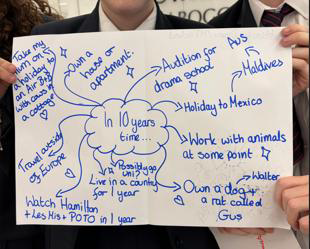 Take my
mum on
a holiday to
an Air B+B
with cats in
a cottage
Own a
house or
apartment.
Audition for
drama school
AUS
Maldives
Holiday to Mexico
In 10 years
time...
Work with animals
at some point
Travel outside
of Europe
Possibly go
uni?
Live in a country
for 1 year
Own a dog +
a rat called
Gus
Walter
Watch Hamilton
+ Les Mis + POTO in 1 year